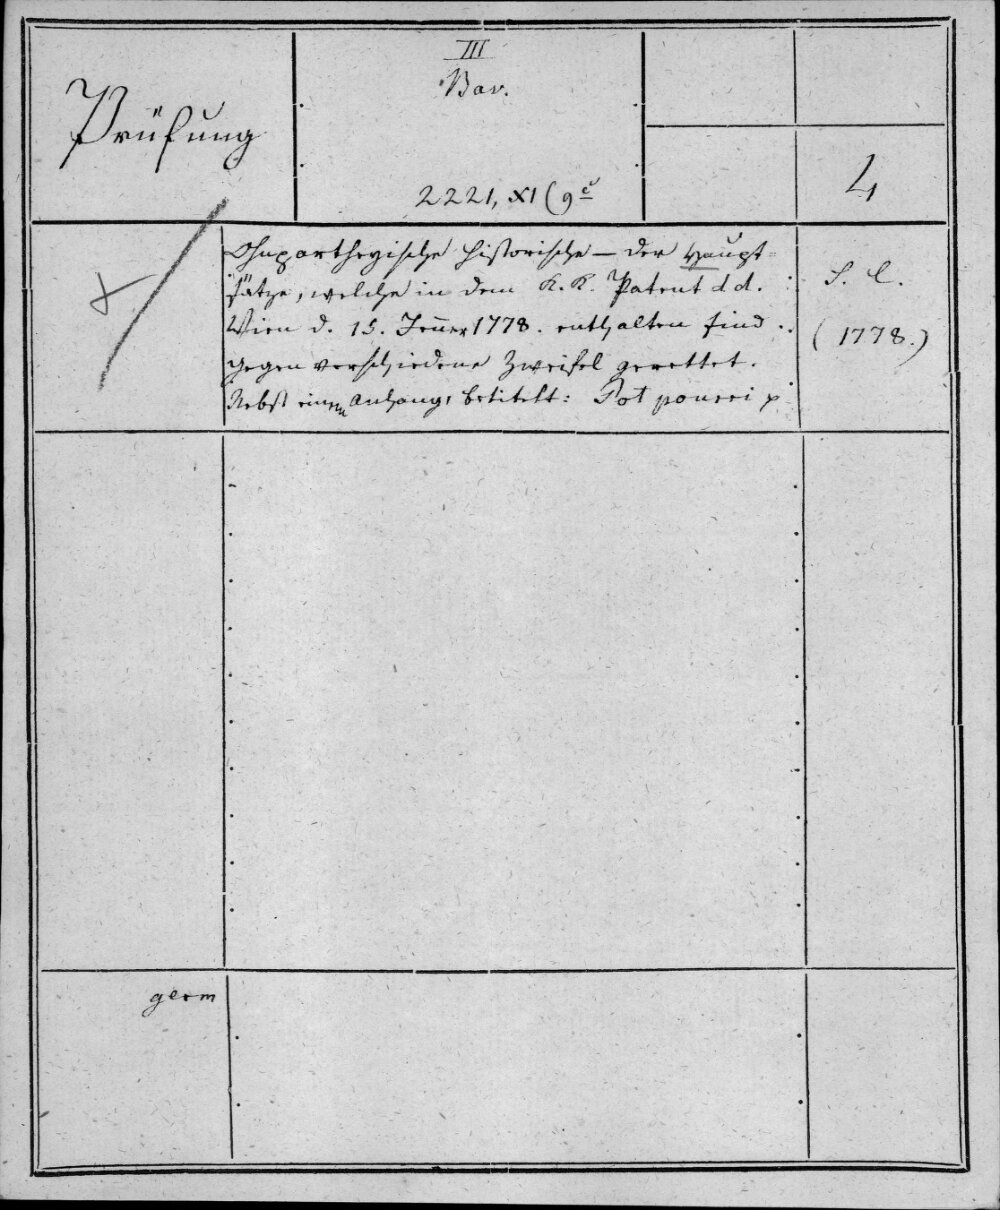 Prüfung
III
Bav.
2221, XI (9c
4
Ohnpartheyische historische — der Haupt-
sätze, welche in dem K. K. Patent d d.
Wien d. 15. Jenner 1778. enthalten sind
gegen verschiedene Zweifel gerettet.
Nebst einem Anhang, betitelt: Pot pourri
S. l.
(1778.)
germ